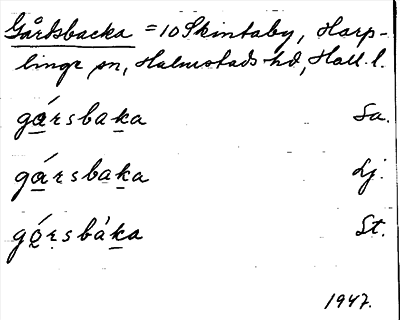 Gårdsbacka = 10 Skintaby, Harp-
linge sn, Halmstads hd, Hall. l.
gársbaka Sa.
gársbaka Lj.
gǫ́rsbàka St.
1947.